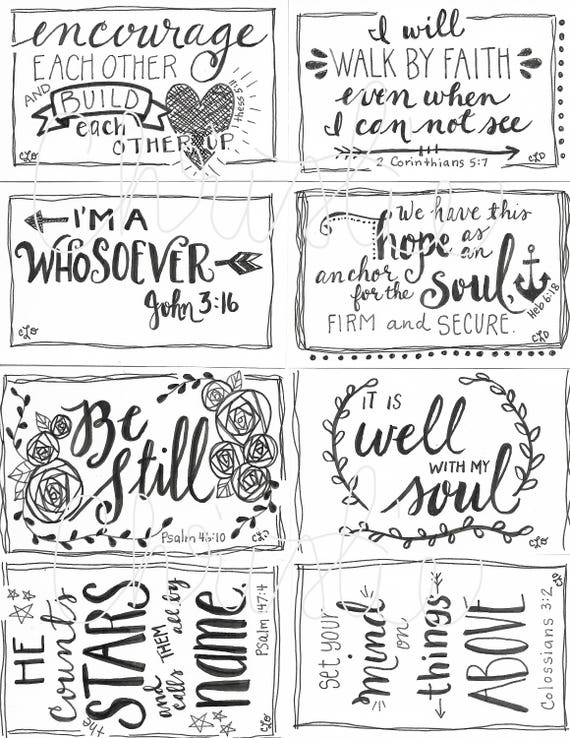 encourage
EACH OTHER
AND BUILD
each
OTHER UP
1 thess 5:11
CLD
I will
WALK BY FAITH
even when
I can not see
2 Corinthians 5:7
CLD
I'M A
WHOSOEVER
John 3:16
CLD
We have this
hope as an
anchor for the soul,
FIRM and SECURE.
Heb 6:18
CLD
Be
Still
Psalm 46:10
CLD
IT IS
well
WITH MY
soul
CLD
HE
counts the
STARS
and calls THEM all by
name.
Psalm 147:4
CLD
set your
mind
on
things
ABOVE
Colossians 3:2
CLD